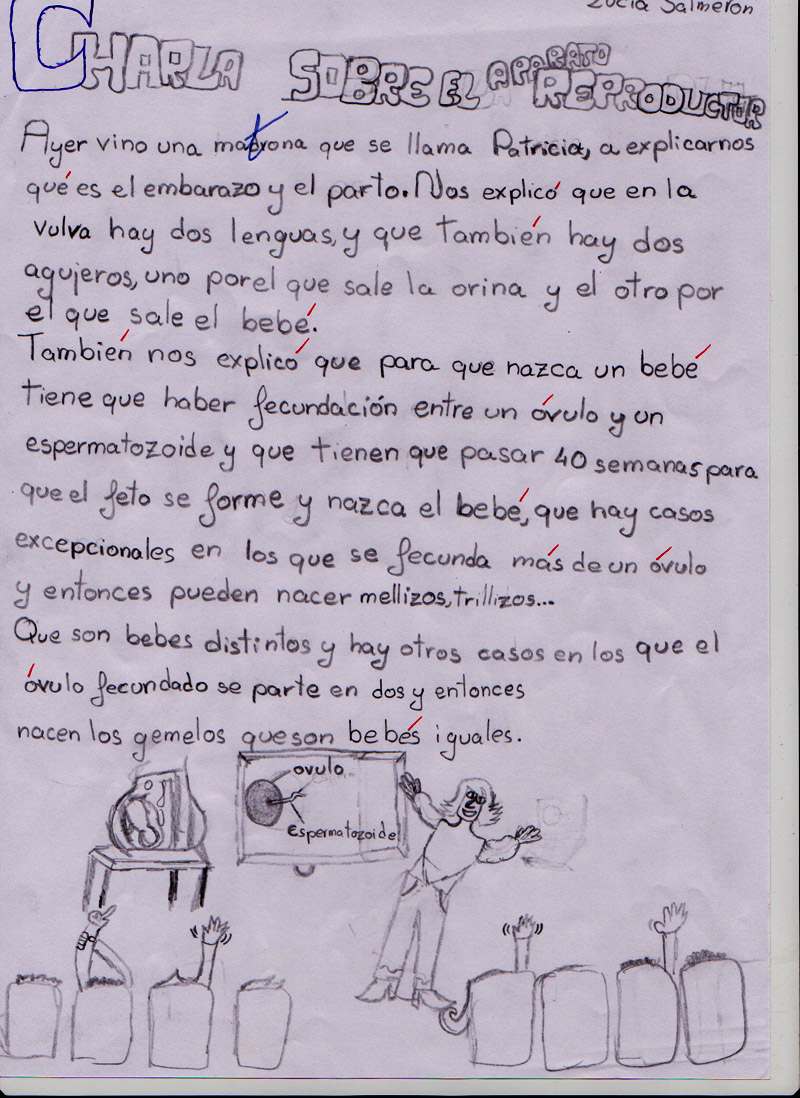 Lucía Salmerón
CHARLA SOBRE EL APARATO REPRODUCTOR
Ayer vino una matrona que se llama Patricia, a explicarnos
qué es el embarazo y el parto. Nos explicó que en la
vulva hay dos lenguas, y que también hay dos
agujeros, uno porel que sale la orina y el otro por
el que sale el bebé.
También nos explicó que para que nazca un bebé
tiene que haber fecundación entre un óvulo y un
espermatozoide y que tienen que pasar 40 semanas para
que el feto se forme y nazca el bebé, que hay casos
excepcionales en los que se fecunda más de un óvulo
y entonces pueden nacer mellizos, trillizos...
Que son bebes distintos y hay otros casos en los que el
óvulo fecundado se parte en dos y entonces
nacen los gemelos queson bebés iguales.
ovulo
Espermatozoide